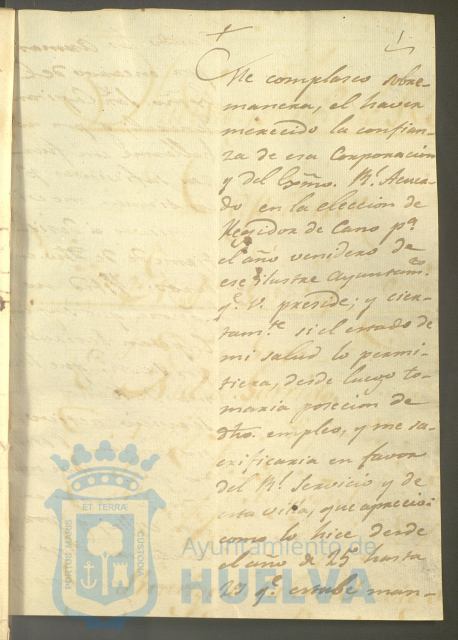 Me complasco sobre-
manera, el haver
merecido la confian-
za de esa Corporacion
y del Exmo. Rl. Acuer-
do en la eleccion de
Regidor de Cano pa.
el año venidero de
ese ilustre Ayuntamto.
qe. V. preside; y cier-
tamte. si el estado de
mi salud lo permi-
tiera, desde luego to-
maria posecion de
dho. empleo, y me sa-
crificaria en favor
del Rl. Servicio y de
esta villa, que aprecio:
como lo hice desde
el año de 25 hasta
27 qe. estube man-
PORTUS MARIS
ET TERRÆ
CUSTODIA
Ayuntamiento de
HUELVA